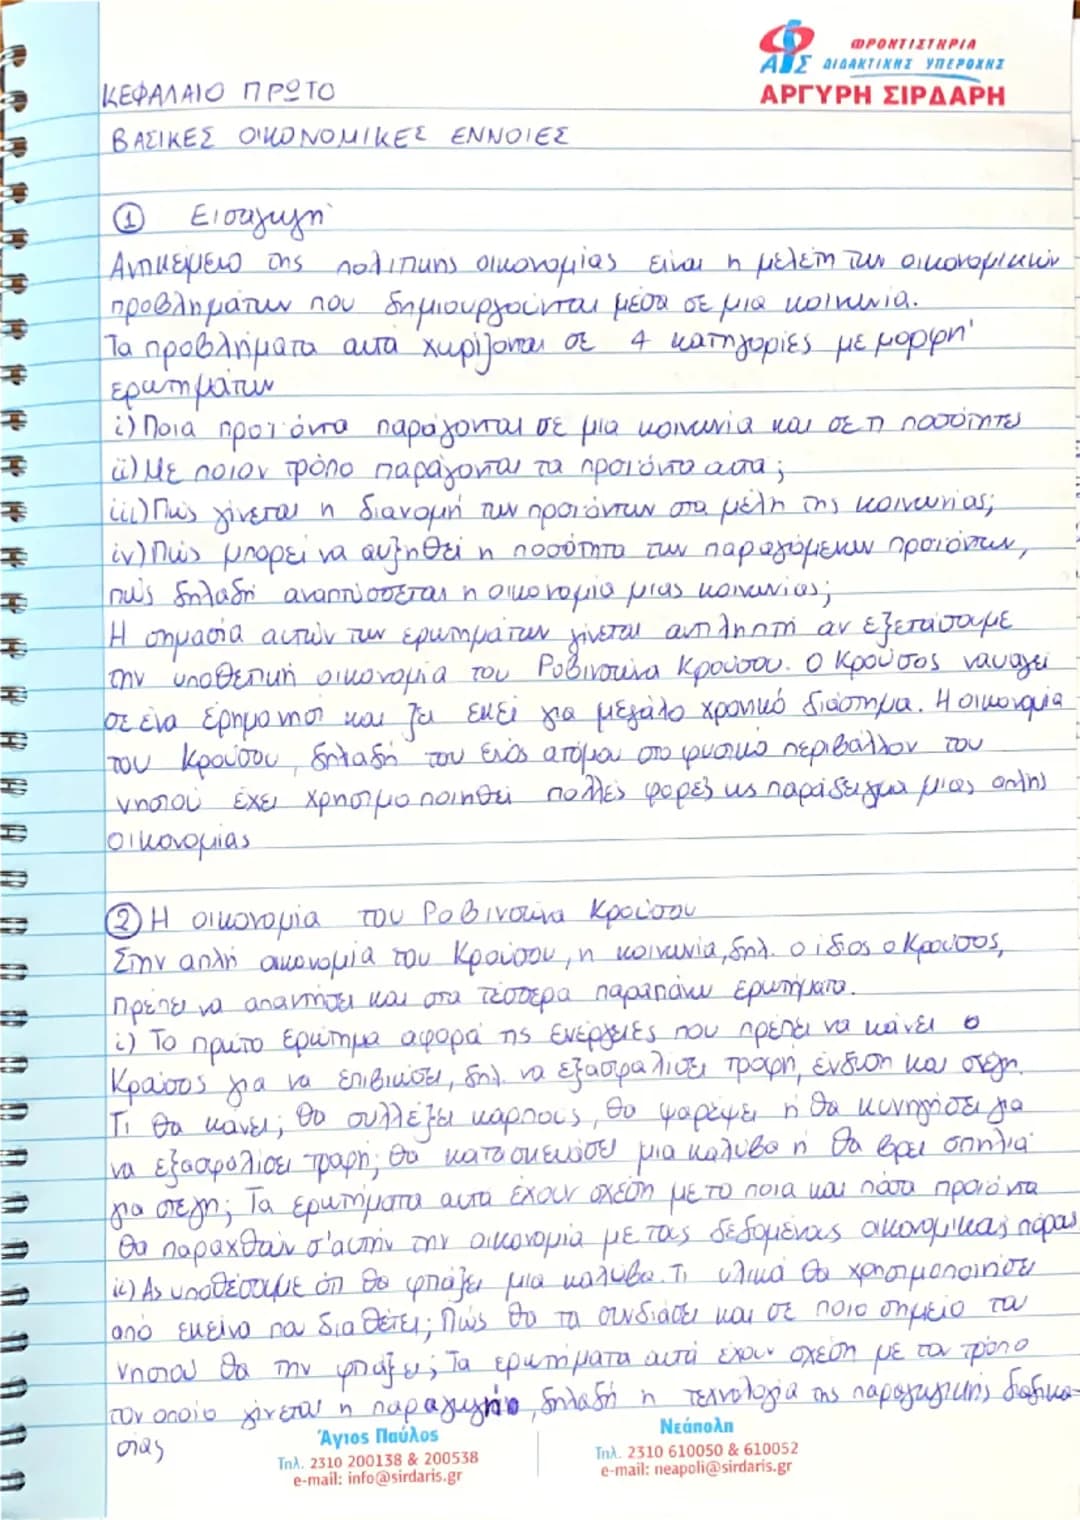 ΦΡΟΝΤΙΣΤΗΡΙΑ
ΔΙΔΑΚΤΙΚΗΣ ΥΠΕΡΟΧΗΣ
ΑΡΓΥΡΗ ΣΙΡΔΑΡΗ
ΚΕΦΑΛΑΙΟ ΠΡΩΤΟ
ΒΑΣΙΚΕΣ ΟΙΚΟΝΟΜΙΚΕΣ ΕΝΝΟΙΕΣ
① Εισαγωγή
Αντικείμενο της πολιτικής οικονομίας είναι η μελέτη των οικονομικών
προβλημάτων που δημιουργούνται μέσα σε μια κοινωνία.
Τα προβλήματα αυτά χωρίζονται σε 4 κατηγορίες με μορφή
ερωτημάτων
i) Ποια προϊόντα παράγονται σε μια κοινωνία και σε τι ποσότητες
ii) Με ποιον τρόπο παράγονται τα προϊόντα αυτα;
iii) Πώς γίνεται η διανομή των προϊόντων στα μέλη της κοινωνίας;
iv) Πώς μπορεί να αυξηθεί η ποσότητα των παραγόμενων προϊόντων,
πώς δηλαδή αναπτύσσεται η οικονομία μιας κοινωνίας;
Η σημασία αυτών των ερωτημάτων γίνεται αντιληπτή αν εξετάσουμε
την υποθετική οικονομία του Ροβινσώνα Κρούσου. Ο Κρούσος ναυαγεί
σε ένα έρημο νησί και ζει εκεί για μεγάλο χρονικό διάστημα. Η οικονομία
του Κρούσου, δηλαδή του ενός ατόμου στο φυσικό περιβάλλον του
νησιού έχει χρησιμοποιηθεί πολλές φορές ως παράδειγμα μιας απλής
οικονομίας
② Η οικονομία του Ροβινσώνα Κρούσου
Στην απλή οικονομία του Κρούσου, η κοινωνία, δηλ. ο ίδιος ο Κρούσος,
πρέπει να απαντήσει και στα τέσσερα παραπάνω ερωτήματα.
i) Το πρώτο ερώτημα αφορά τις ενέργειες που πρέπει να κάνει ο
Κρούσος για να επιβιώσει, δηλ. να εξασφαλίσει τροφή, ένδυση και στέγη.
Τι θα κάνει; Θα συλλέξει καρπους, θα ψαρέψει ή θα κυνηγήσει για
να εξασφαλίσει τροφή; Θα κατασκευάσει μια καλύβα ή θα βρει σπηλιά
για στέγη; Τα ερωτήματα αυτα έχουν σχέση με το ποια και πόσα προϊόντα
θα παραχθούν σ'αυτήν την οικονομία με τους δεδομένους οικονομικους πόρους
ii) Ας υποθέσουμε ότι θα φτιάξει μια καλύβα. Τι υλικά θα χρησιμοποιήσει
από εκείνα που διαθέτει; Πώς θα τα συνδιάσει και σε ποιο σημείο του
νησιου θα την φτιάξει; Τα ερωτήματα αυτά έχουν σχέση με τον τρόπο
τον οποίο γίνεται η παραγωγή, δηλαδή η τεχνολογία της παραγωγικής διαδικα-
σίας
Άγιος Παύλος
Τηλ. 2310 200138 & 200538
e-mail: info@sirdaris.gr
Νεάπολη
Τηλ. 2310 610050 & 610052
e-mail: neapoli@sirdaris.gr